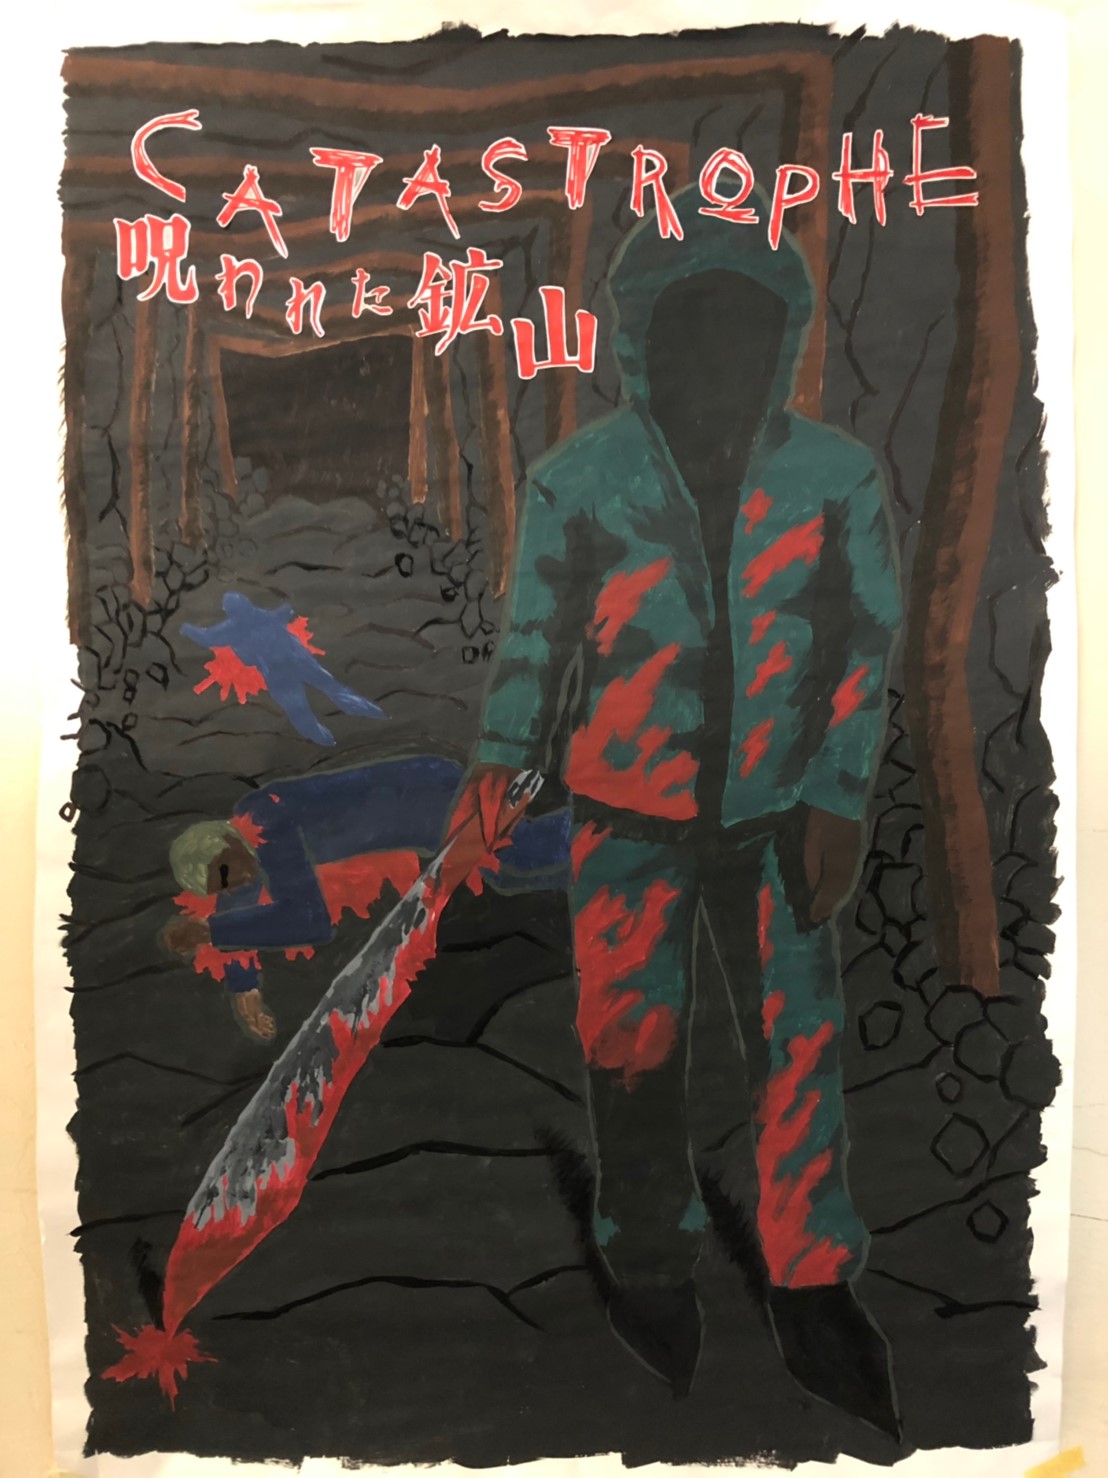 CATASTROPHE
呪われた鉱山